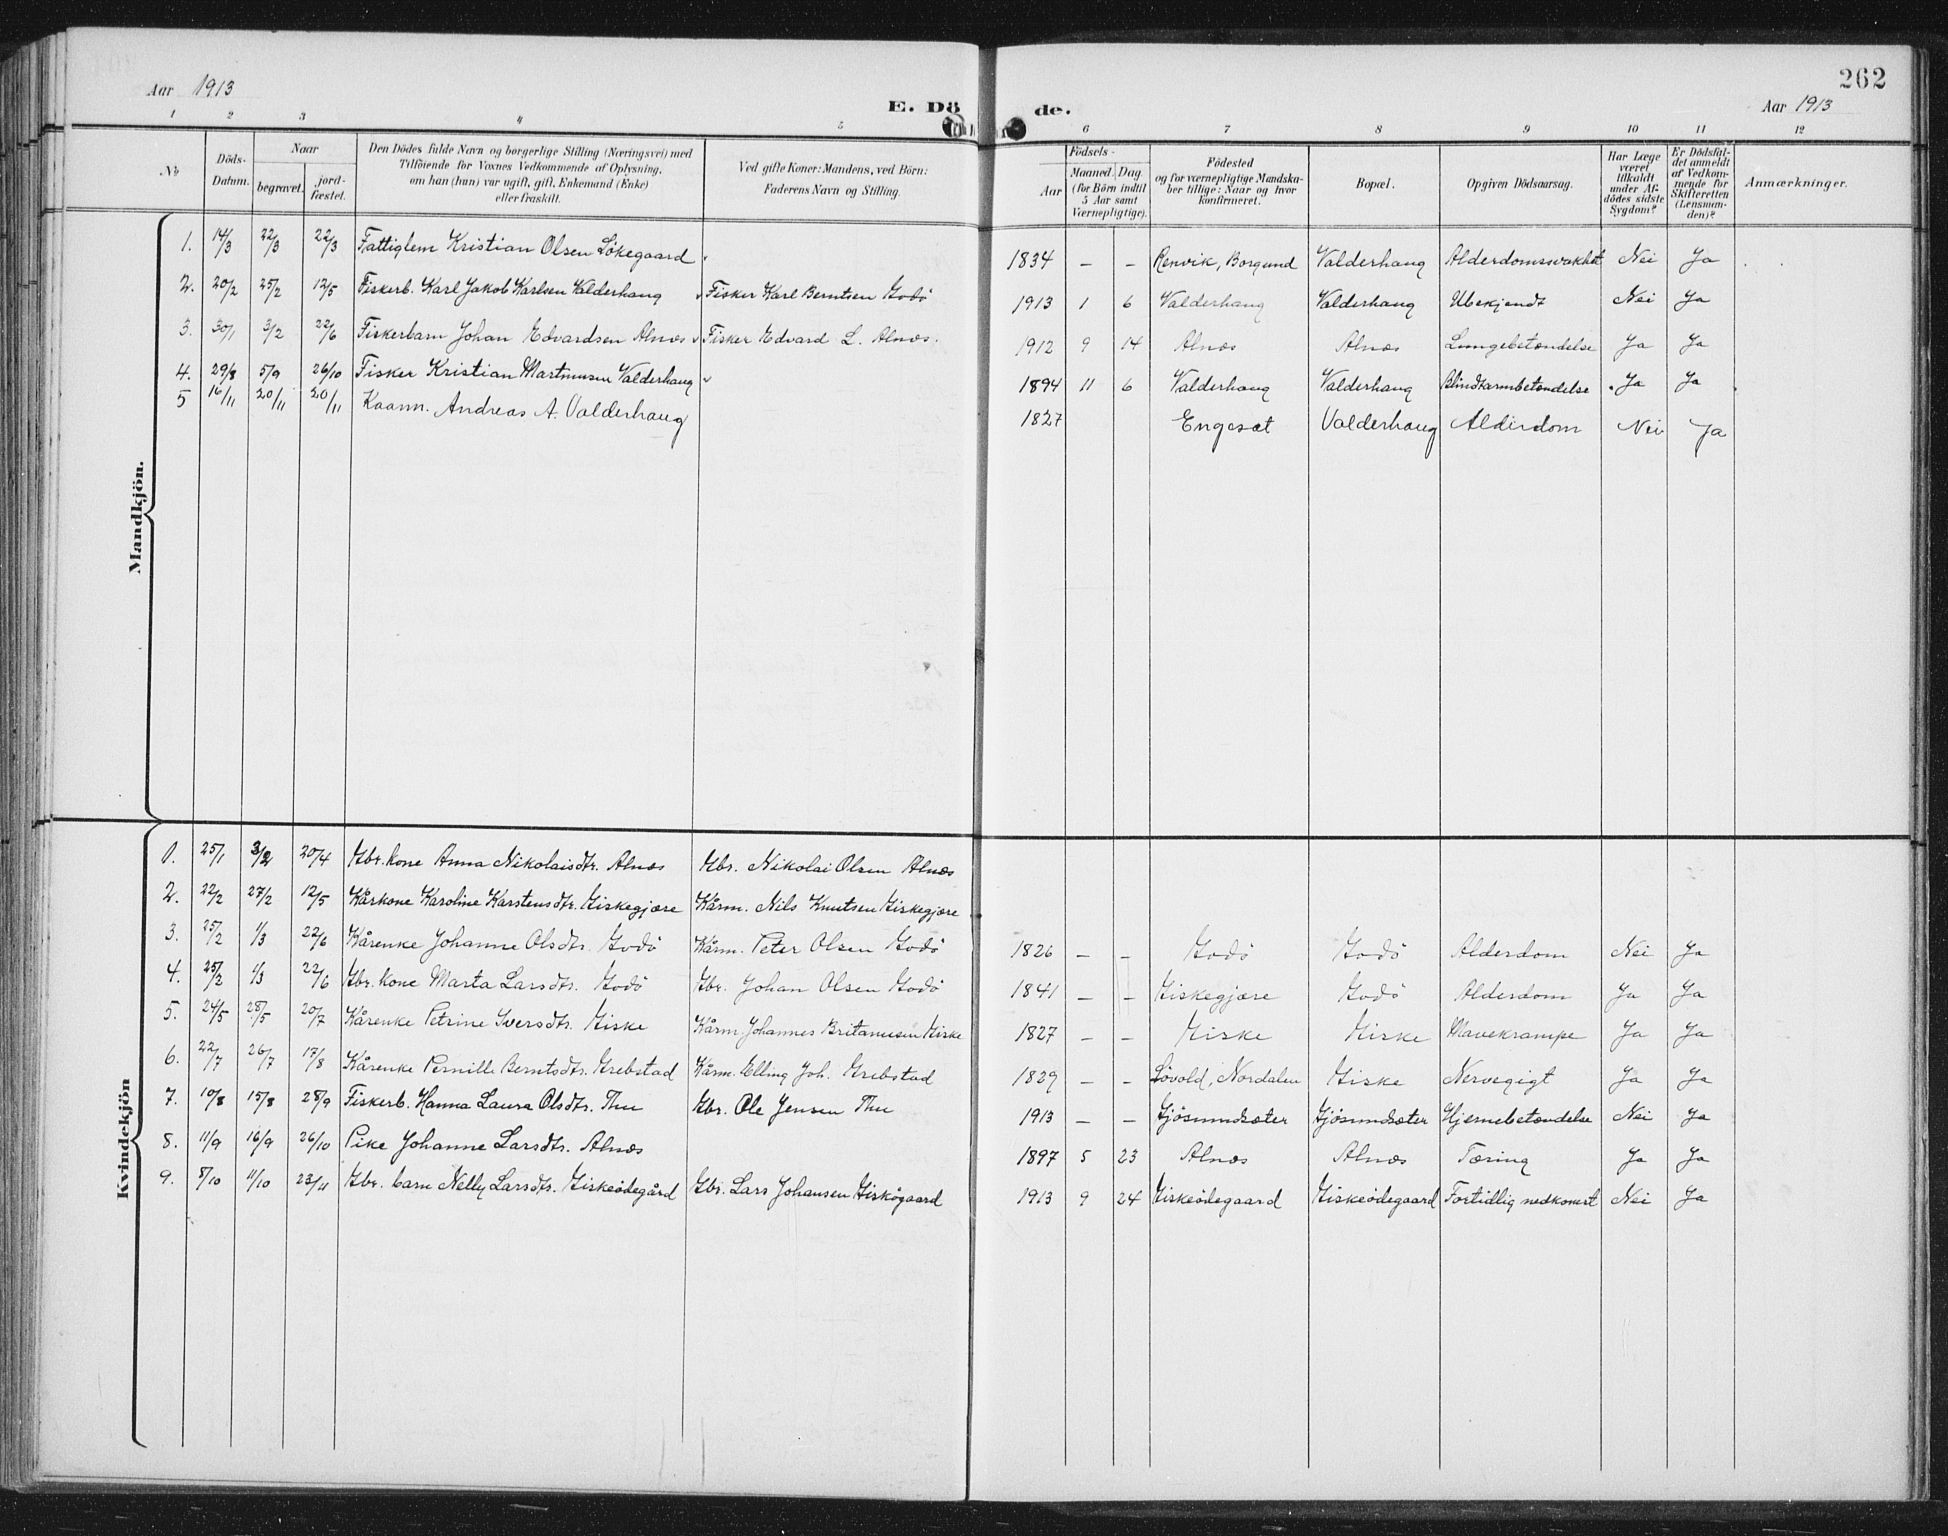 Aar 1913
E. Döde.
262
Aar 1913
1 2 3 4 5 6 7 8 9 10 11 12
№
Döds-Datum.
Naar begravet. jordfæstet.
Den Dödes fulde Navn og borgerlige Stilling (Næringsvei) med Tilföiende for Voxnes Vedkommende af Oplysning, om han (hun) var ugift, gift, Enkemand (Enke) eller fraskilt.
Ved gifte Koner: Mandens, ved Börn: Faderens Navn og Stilling.
Födsels-
Aar Maaned. Dag. (for Börn indtil 5 Aar samt Værnepligtige).
Födested og for værnepligtige Mandskaber tillige: Naar og hvor konfirmeret.
Bopæl.
Opgiven Dödsaarsag.
Har Læge været tilkaldt under Afdödes sidste Sygdom?
Er Dödsfaldet anmeldt af Vedkommende for Skifteretten (Lensmanden)?
Anmærkninger.
Mandkjön.
1. 14/3 22/3 22/3 Fattiglem Kristian Olsen Lökegaard 1834 – – Renvik, Borgund Valderhaug Alderdomssvakhet Nei Ja
2. 20/2 25/2 12/5 Fiskerb. Karl Jakob Karlsen Valderhaug Fisker Karl Berntsen Godö 1913 1 6 Valderhaug Valderhaug Ubekjendt Nei Ja
3. 30/1 3/2 22/6 Fiskerbarn Johan Edvardsen Alnæs Fisker Edvard L. Alnæs. 1912 9 14 Alnæs Alnæs Lungebetændelse Ja Ja
4. 29/8 5/9 26/10 Fisker Kristian Martinusen Valderhaug 1894 11 6 Valderhaug Valderhaug Blindtarmbetændelse Ja Ja
5 16/11 20/11 20/11 Kaarm. Andreas A. Valderhaug 1827 Engeset Valderhaug Alderdom Nei Ja
Kvindekjön
1. 25/1 3/2 20/4 Gbr. kone Anna Nikolaisdtr. Alnæs Gbr. Nikolai Olsen Alnæs
2. 22/2 27/2 12/5 Kårkone Karoline Karstensdtr. Giskegjære Kårm. Nils Knutsen Giskegjære
3. 25/2 1/3 22/6 Kårenke Johanne Olsdtr. Godö Kårm. Peter Olsen Godö 1826 – – Godö Godö Alderdom Nei Ja
4. 25/2 1/3 22/6 Gbr. kone Marta Larsdtr. Godö Gbr. Johan Olsen Godö 1841 – – Giskegjære Godö Alderdom Ja Ja
5. 24/5 28/5 20/7 Kårenke Petrine Iversdtr. Giske Kårm. Johannes Britanusen Giske 1827 – – Giske Giske Mavekrampe Ja Ja
6. 22/7 26/7 17/8 Kårenke Pernille Berntsdtr. Grebstad Kårm. Elling Joh. Grebstad 1829 – – Lövold, Nordalen Giske Nervegigt Ja Ja
7. 10/8 15/8 28/9 Fiskerb. Hanna Laura Olsdtr. Thu Gbr. Ole Jensen Thu 1913 – – Gjösundsæter Gjösundsæter Hjernebetændelse Nei Ja
8. 11/9 16/9 26/10 Pike Johanne Larsdtr. Alnæs 1897 5 23 Alnæs Alnæs Tæring Ja Ja
9. 8/10 11/10 23/11 Gbr. barn Nelly Larsdtr. Giskeödegård Gbr. Lars Johansen Giskögaard 1913 9 24 Giskeödegaard Giskeödegaard Fortidlig nedkomst Nei Ja